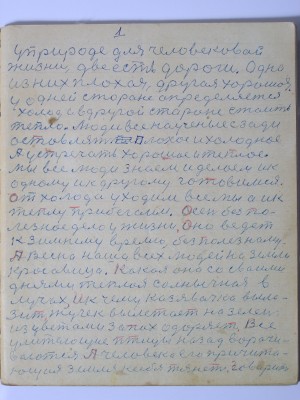 1
У природе для человековой
жизни две есть дороги. Одна
из них плохая, другая хорошая
у одней стороне определяется
холод а вдругой стороне стоит
тепло. Люди все научены сзади
оставлят плохое и холодное
А устречать хорошое и теплое.
мы все люди знаем и делаем их
одному их другому готовимся.
От холода уходим все мы а ик
теплу прибегаем. Осень без по-
лезное дело у жизни, Оно ведет
к зимнему время, без полезному.
А Весна наша всех людей на земли
красавица. Какая оно со своими
днями теплая солнечная в
лучах, их чему казявка выле-
зит, жучек вылетает на зелень
из цветами запах одоряет, Все
улитающие птицы назад ворачи-
ваются А человека его причита-
ющая земля к себя тянет, говорить